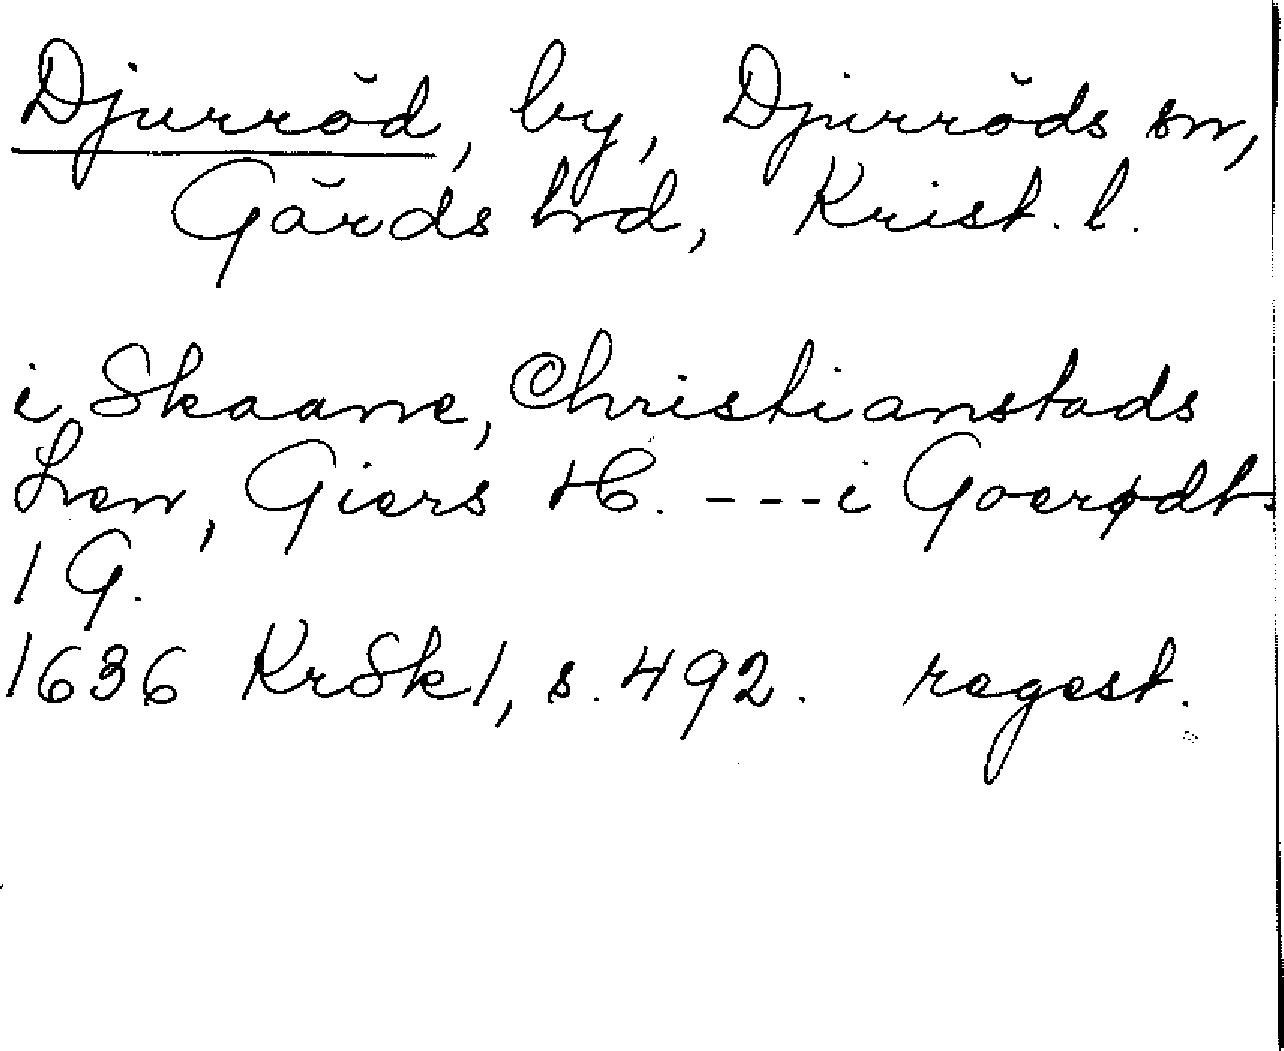 Djurröd, by, Djurröds sn,
Gärds hrd, Krist. l.
i Skaane, Christianstads
Len, Giers H. --- i Goerødt
1 G.
1636 KrSk1, s. 492. regest.